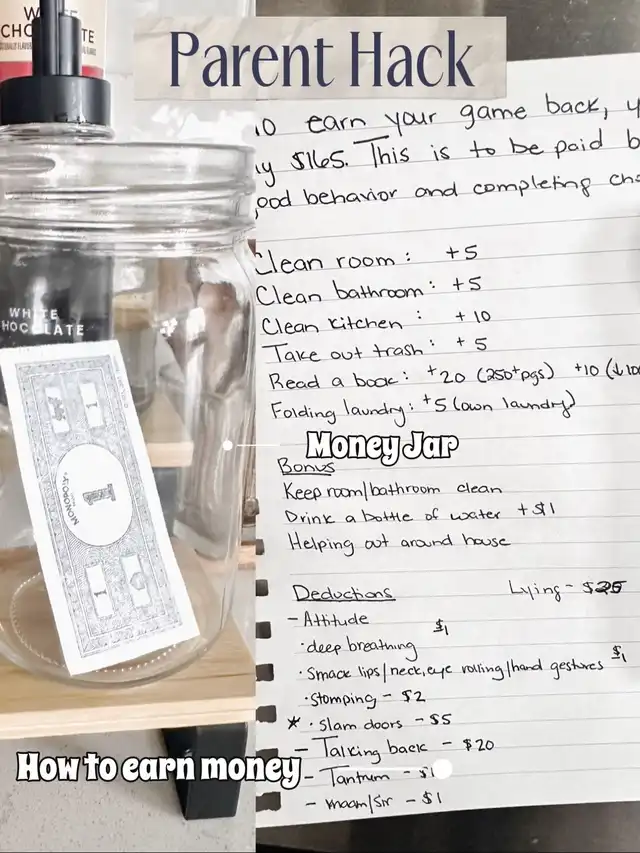 Parent Hack
WHITE
CHOCOLATE
WHITE
CHOCOLATE
MONOPOLY
1
Money Jar
How to earn money
earn your game back,
$165. This is to be paid
good behavior and completing
Clean room: +5
Clean bathroom: +5
Clean kitchen: +10
Take out trash: +5
Read a book: +20 (250+pgs) +10 (↓100
Folding laundry: +5 (own laundry)
Bonus
Keep room/bathroom clean
Drink a bottle of water +$1
Helping out around house
Deductions Lying - $25
- Attitude
· deep breathing $1
· Smack lips/neck, eye rolling/hand gestures $1
· Stomping - $2
* · Slam doors - $5
- Talking back - $20
- Tantrum - $1
- maam/sir - $1